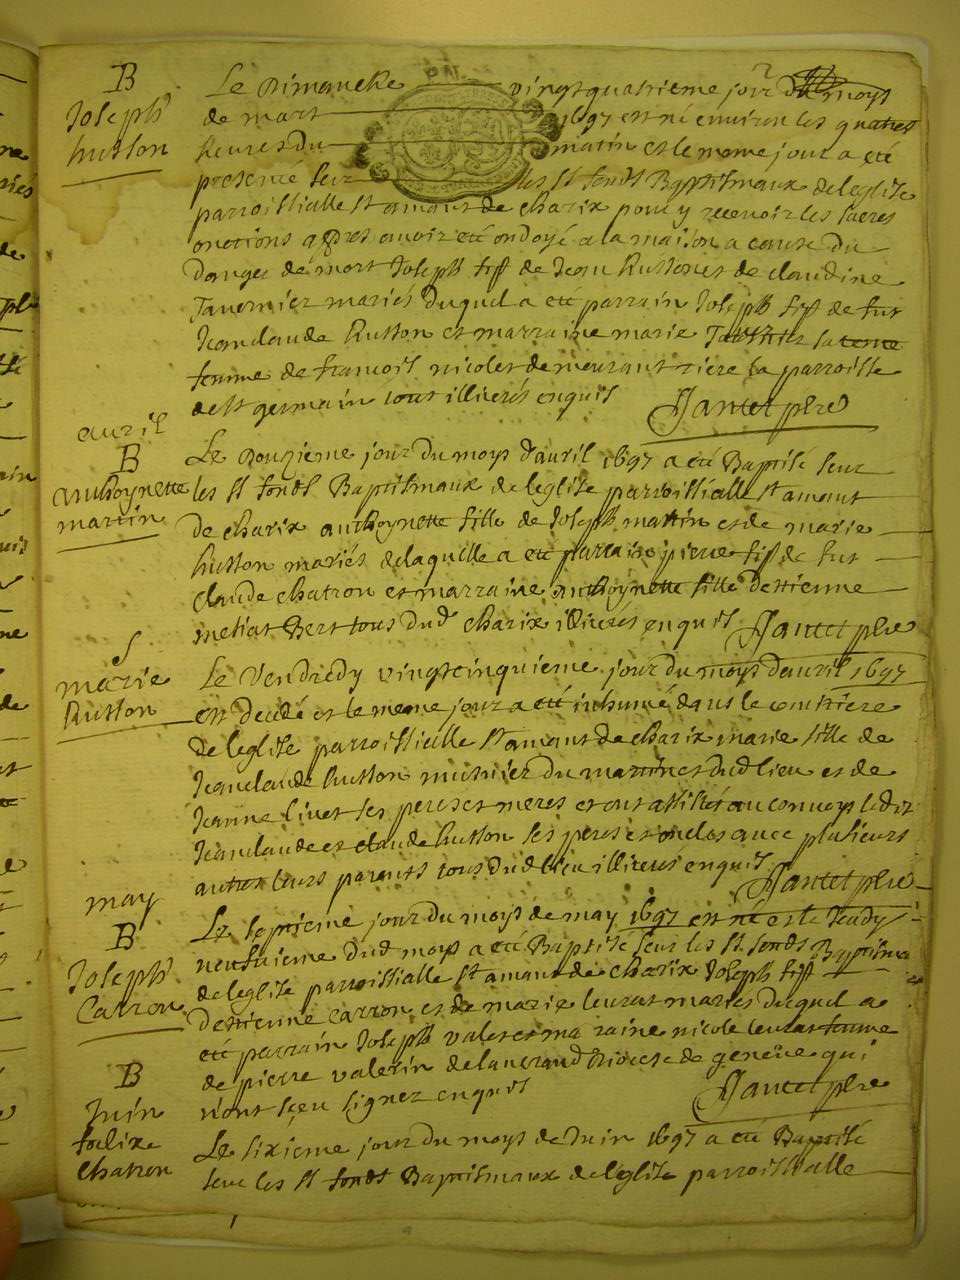 B
Joseph
husson
Le Dimanche vingtquatrieme jour du moys
de mart 1697 est né environ les quatres
heures du matin et le meme jour a eté
presenté seur les St fonds Baptismaux de leglise
parroissialle St amant de charix pour y recevoir les sacres
onctions apres avoir eté ondoyé a la maison a cause du
danger de mort Joseph fils de Jean Husson et de claudine
Tavernier mariés duquel a eté parrain Joseph fils de fut
Jeanclaude husson et marraine marie
femme de francois nicolet demeurant riere la parroisse
de st germain tous illiterés enquis Jantet pbre
avril
B
anthoynette
martin
Le Douzieme jour du moys d'avril 1697 a eté Baptisé seur
les St fonds Baptismaux de leglise parroissialle St amant
de charix anthoynette fille de Joseph martin et de marie
husson mariés delaquelle a eté parrain pierre fils de fut
claude chatron et marraine anthoynette fille dettienne
tous dud charix illiterés enquis Jantet pbre
S
marie
husson
Le Vendredy vingtcinquieme jour du moys davril 1697
est decedé et le meme jour a eté inhumé dans le cemitiere
de leglise parroissialle St amant de charix marie fille de
Jeanclaude husson musnier du dud lieu et de
Jeanne livet ses peres et meres et ont assisté au convoys ledit
Jeanclaude et claude husson ses peres et oncles avec plusieurs
autres leurs parents tous dud lieu illiterés enquis Jantet pbre
may
B
Joseph
Carron
Le septieme jour du moys de may 1697 est né et le Jeudy
neufvieme dud moys a eté Baptisé seur les St fonds Baptisma
de leglise parroissialle St amant de charix Joseph fils
dettienne carron et de marie levrat mariés duquel a
eté parrain Joseph valet et ma raine nicole levrat femme
de pierre valerin de diocese de geneve qui
n'ont sceu signez enquis Jantet pbre
B
Juin
foelixe
chatron
Le sixieme jour du moys de Juin 1697 a eté Baptisé
seur les St fonds Baptismaux de leglise parroissialle